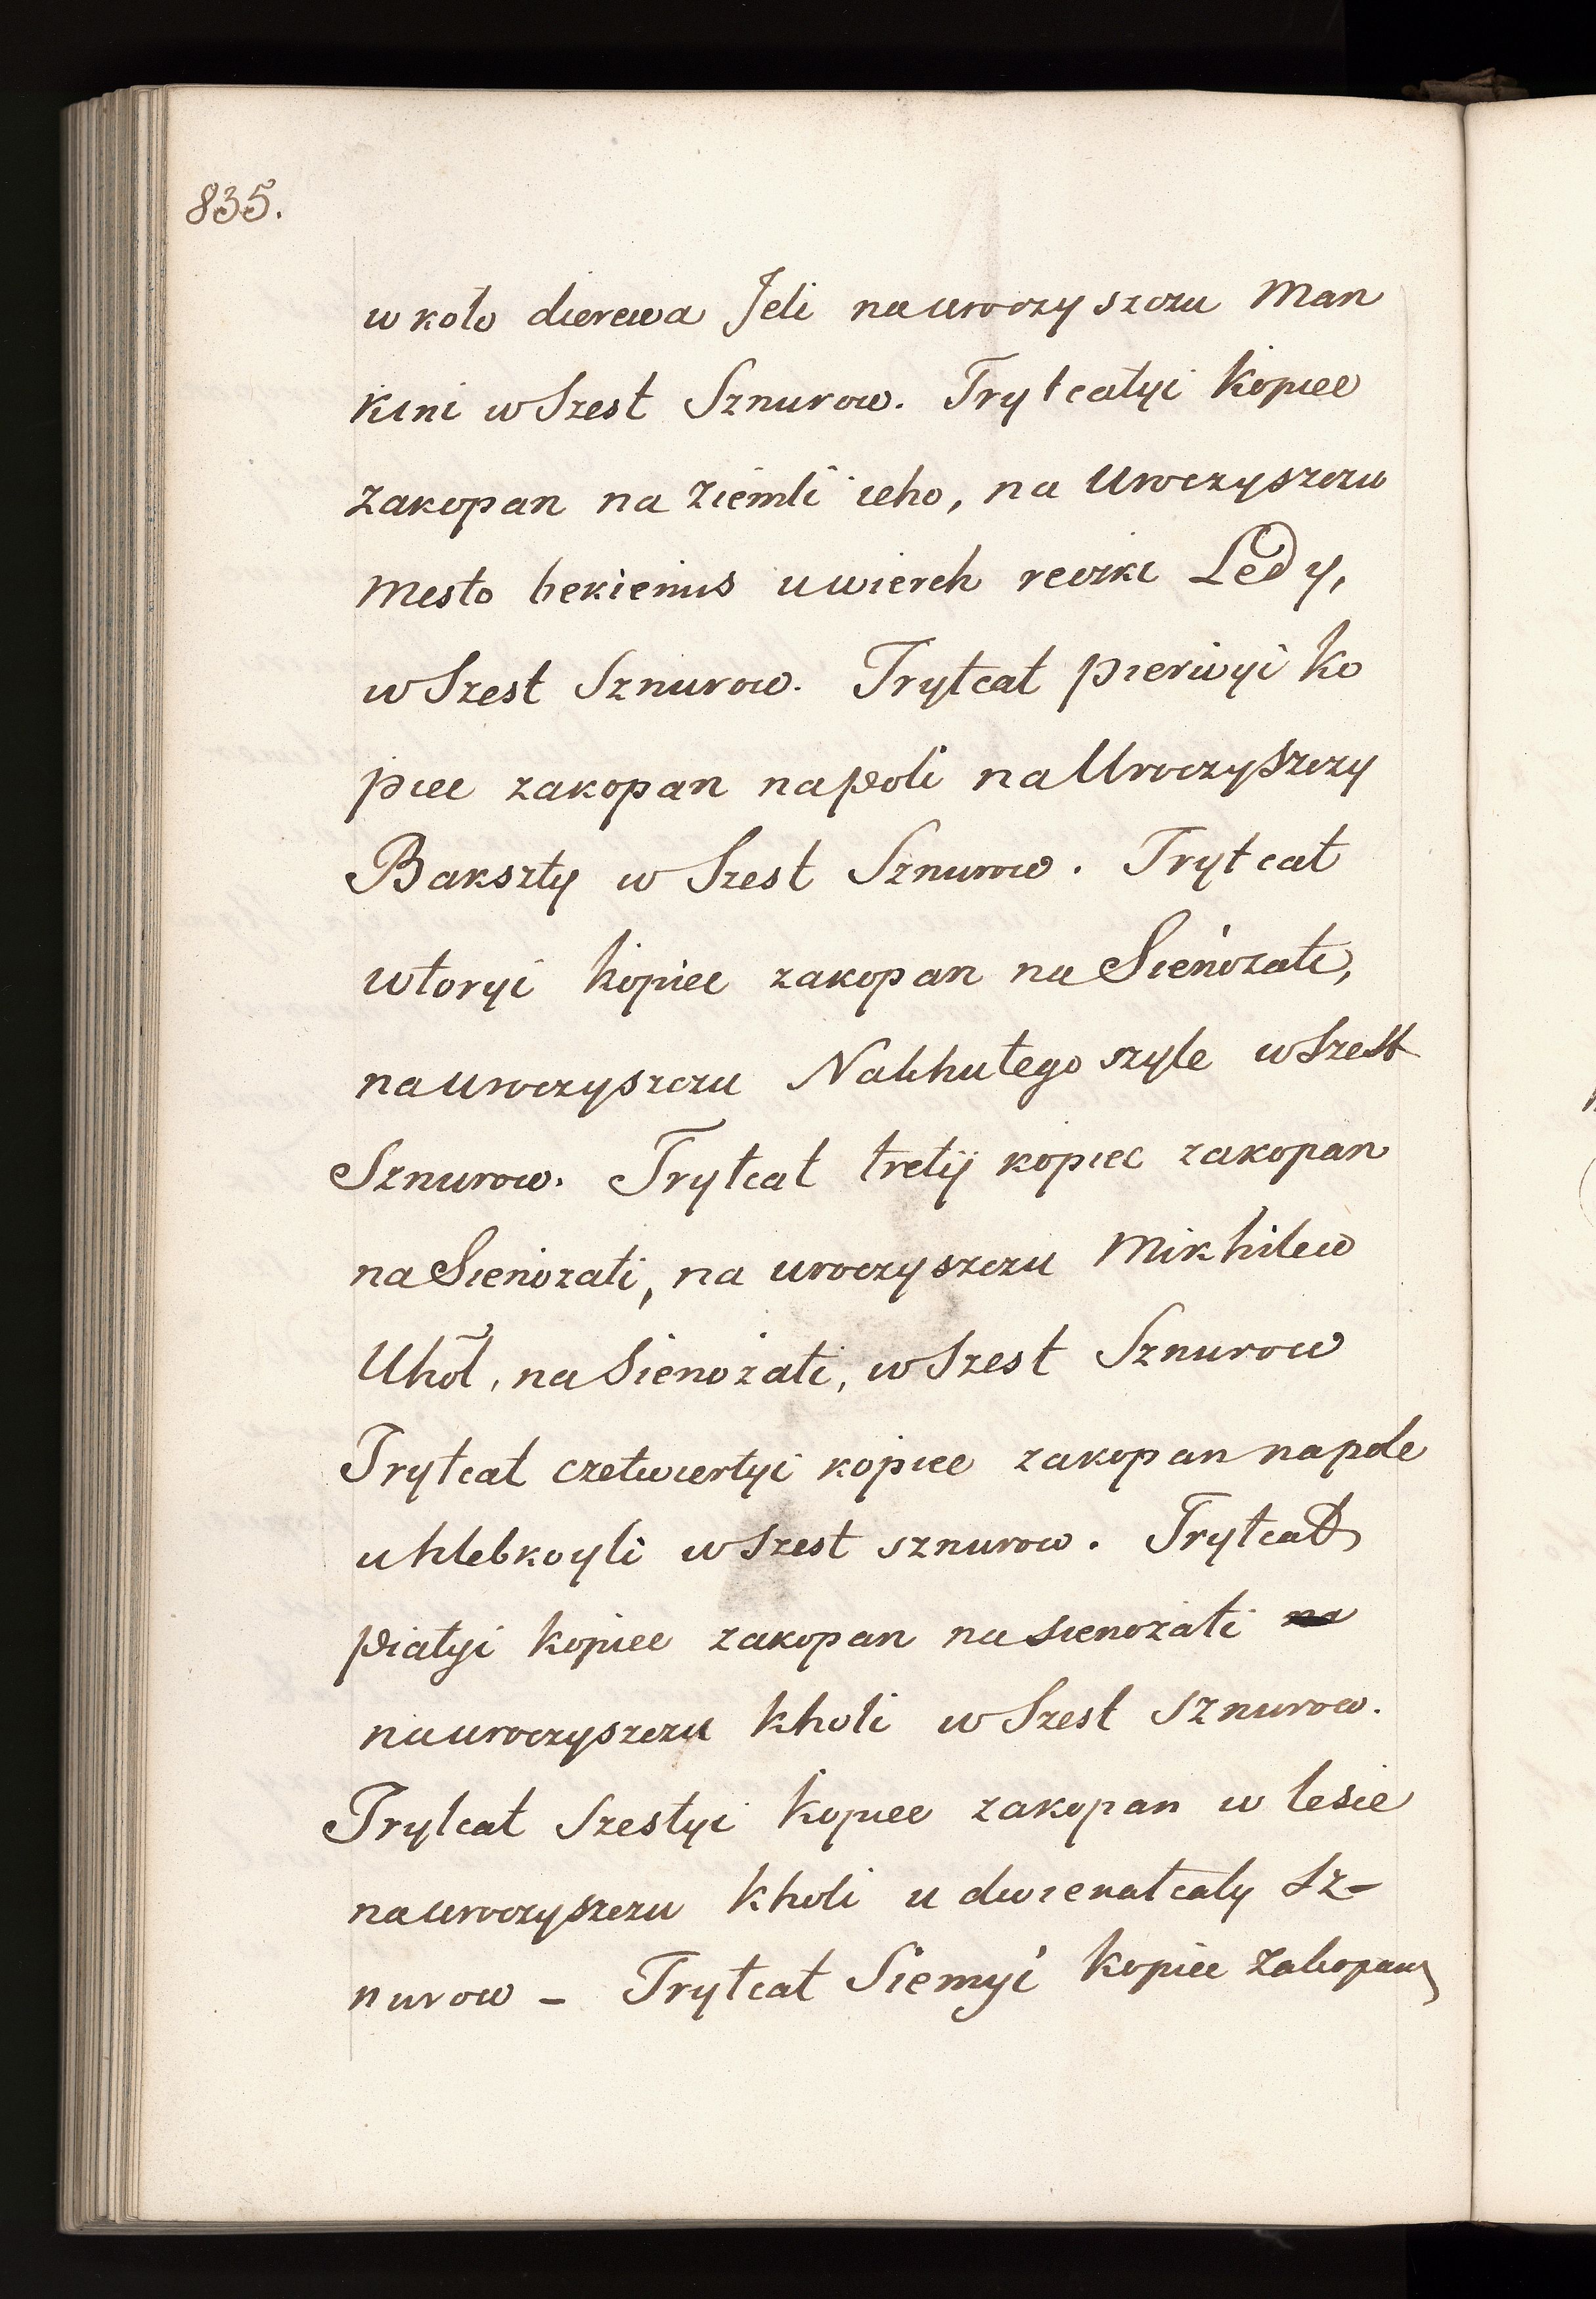 835.
w koło dierewa Jeli na uroczyszczu Man
kini w Szest Sznurow. Trytcatyi Kopiec
zakopan na ziemli ieho, na Uroczyszczu
Mesto hekienus uwierch reczki Ledy,
w Szest Sznurow. Trytcat pierwyi Ko
piec zakopan na poli na Uroczyszczy
Bakszty w Szest Sznurow. Trytcat
wtoryi kopiec zakopan na Sienozati,
na uroczyszczu szyle w Szest
Sznurow. Trytcat tretij kopiec zakopan
na Sienozati, na uroczyszczu Mikhilew
Uhoł, na Sienożati, w Szest Sznurow
Trytcat czetwiertyi kopiec zakopan na pole
u hlebkoyli w Szest sznurow. Trytcat
piatyi kopiec zakopan na sienozati na
na uroczyszczu kholi w Szest Sznurow.
Trytcat Szestyi Kopiec zakopan w lesie
na uroczyszczu kholi u dwienatcaty Sz-
nurow - Trytcat Siemyi kopiec zakopan